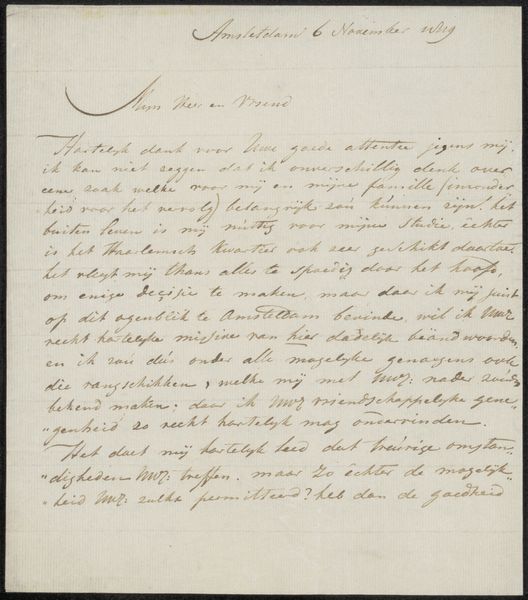 Amsterdam 6 November 1819
Mijn Heer en Vriend
Hartelyk dank voor Uwe goede attentie jegens mij.
ik kan niet zeggen dat ik onverschillig denk over
eene zaak welke voor mij en mijne famille (inzonder
heid voor het vervolg) belangrijk zoú kúnnen zijn. het
buiten leven is mij núttig voor mijne Studie, èchter
is het Haarlemsch Kwartier ook zeer geschikt daartoe.
het vliegt mij thans alles te spoedig door het hoofd,
om enige decisie te maken, maar daar ik mij júist
op dit ogenblik te Amsterdam bevinde, wil ik UWZ
recht hartelijke missive van hier dadelijk beäntwoorden,
en ik zoú dús onder alle mogelyke genoegens ook
die rangschikken, welke mij met UWZ: nader zoúden
bekend maken; daar ik UWZ vriendschappelyke gene"
"genheid zo recht hartelyk mag ondervinden.
Het doet mij hartelyk leed dat treúrige omstan"
"digheden UWZ: treffen. maar zo èchter de mogelijk"
"heid UWZ: zúlks permitteerd? heb dan de goedheid